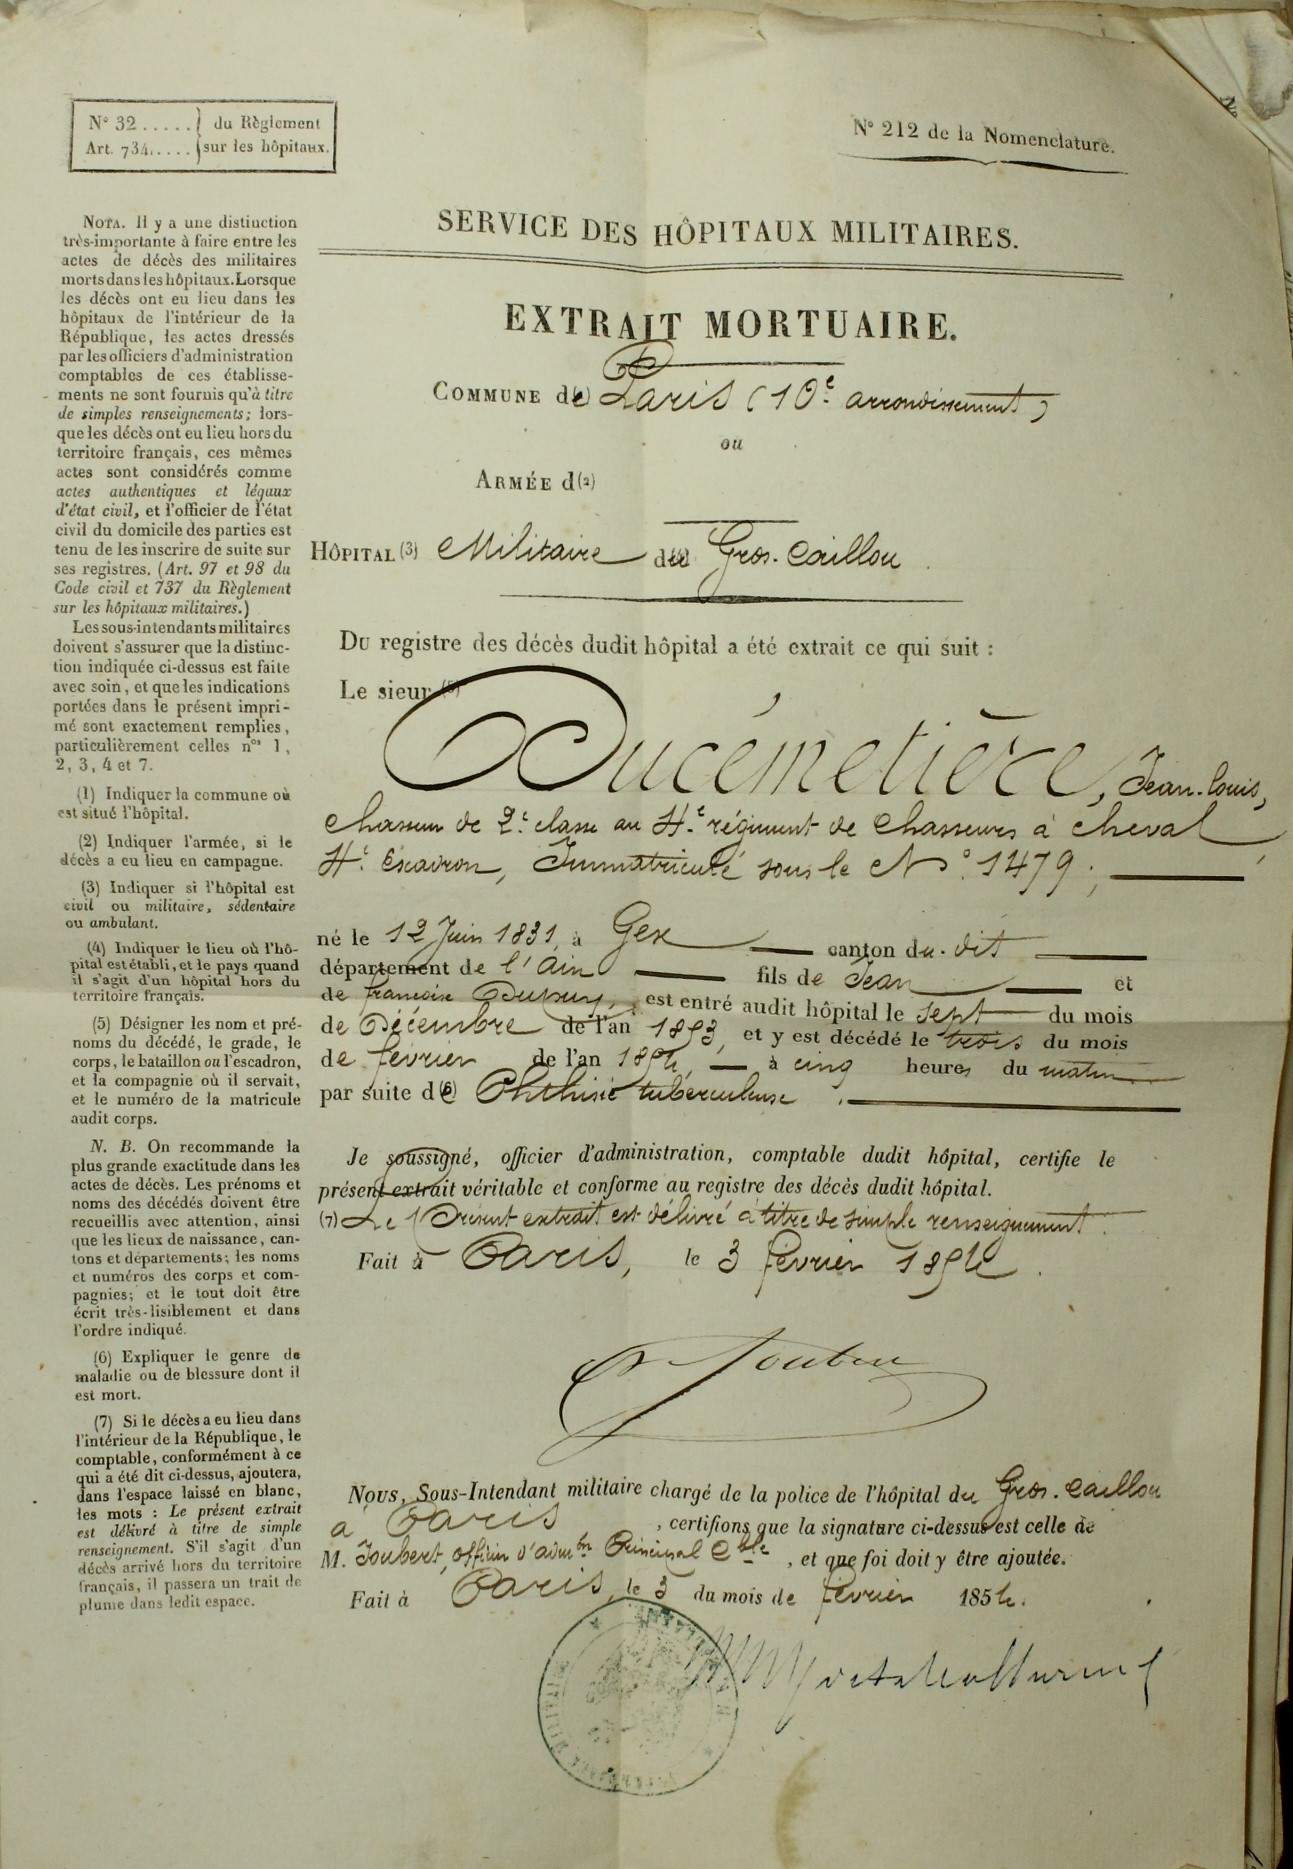 N° 32 ..... } du Règlement
Art. 734. .... } sur les hôpitaux.
N° 212 de la Nomenclature.
NOTA. Il y a une distinction
très-importante à faire entre les
actes de décès des militaires
morts dans les hôpitaux. Lorsque
les décès ont eu lieu dans les
hôpitaux de l'intérieur de la
République, les actes dressés
par les officiers d'administration
comptables de ces établisse-
ments ne sont fournis qu'à titre
de simples renseignements; lors-
que les décès ont eu lieu hors du
territoire français, ces mêmes
actes sont considérés comme
actes authentiques et légaux
d'état civil, et l'officier de l'état
civil du domicile des parties est
tenu de les inscrire de suite sur
ses registres. (Art. 97 et 98 du
Code civil et 737 du Règlement
sur les hôpitaux militaires.)
Les sous-intendants militaires
doivent s'assurer que la distinc-
tion indiquée ci-dessus est faite
avec soin, et que les indications
portées dans le présent impri-
mé sont exactement remplies,
particulièrement celles nos 1,
2, 3, 4 et 7.
(1) Indiquer la commune où
est situé l'hôpital.
(2) Indiquer l'armée, si le
décès a eu lieu en campagne.
(3) Indiquer si l'hôpital est
civil ou militaire, sédentaire
ou ambulant.
(4) Indiquer le lieu où l'hô-
pital est établi, et le pays quand
il s'agit d'un hôpital hors du
territoire français.
(5) Désigner les nom et pré-
noms du décédé, le grade, le
corps, le bataillon ou l'escadron,
et la compagnie où il servait,
et le numéro de la matricule
audit corps.
N. B. On recommande la
plus grande exactitude dans les
actes de décès. Les prénoms et
noms des décédés doivent être
recueillis avec attention, ainsi
que les lieux de naissance, can-
tons et départements; les noms
et numéros des corps et com-
pagnies; et le tout doit être
écrit très-lisiblement et dans
l'ordre indiqué.
(6) Expliquer le genre de
maladie ou de blessure dont il
est mort.
(7) Si le décès a eu lieu dans
l'intérieur de la République, le
comptable, conformément à ce
qui a été dit ci-dessus, ajoutera,
dans l'espace laissé en blanc,
les mots : Le présent extrait
est délivré à titre de simple
renseignement. S'il s'agit d'un
décès arrivé hors du territoire
français, il passera un trait de
plume dans ledit espace.
SERVICE DES HÔPITAUX MILITAIRES.
EXTRAIT MORTUAIRE.
COMMUNE de Paris (10e arrondissement)
ou
ARMÉE d(2)
HÔPITAL (3) Militaire du Gros-Caillou
Du registre des décès dudit hôpital a été extrait ce qui suit :
Le sieur (5)
Ducémetière, Jean-Louis,
Chasseur de 2e classe au 4e régiment de Chasseurs à cheval,
4e Escadron, Immatriculé sous le N° 1479;
né le 12 Juin 1831, à Gex canton du dit
département de l'Ain fils de Jean et
de françoise Dupuy, est entré audit hôpital le sept du mois
de Décembre de l'an 1853, et y est décédé le trois du mois
de février de l'an 1854, à cinq heures du matin
par suite de Phthisie tuberculeuse.
Je soussigné, officier d'administration, comptable dudit hôpital, certifie le
présent extrait véritable et conforme au registre des décès dudit hôpital.
(7) Le Présent extrait est délivré à titre de simple renseignement.
Fait à Paris, le 3 février 1854.
Joubert
NOUS, Sous-Intendant militaire chargé de la police de l'hôpital du Gros-Caillou
à Paris, certifions que la signature ci-dessus est celle de
M. Joubert, officier d'admon Principal Cble, et que foi doit y être ajoutée.
Fait à Paris, le 3 du mois de février 1854.
INTENDANCE MILITAIRE